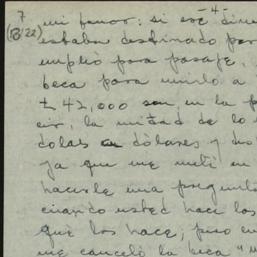 -4-
7
(B/22) mi favor: si ese dine
estaba destinado par
emplio para pasaje,
beca para unirlo a
£ 42,000 son, en la p
cir, la mitad de lo
dolas en dólares y do
ya que me metí en
hacerle una pregunta
cuando usted hace los
que los hace, pero en
me canceló la beca "M